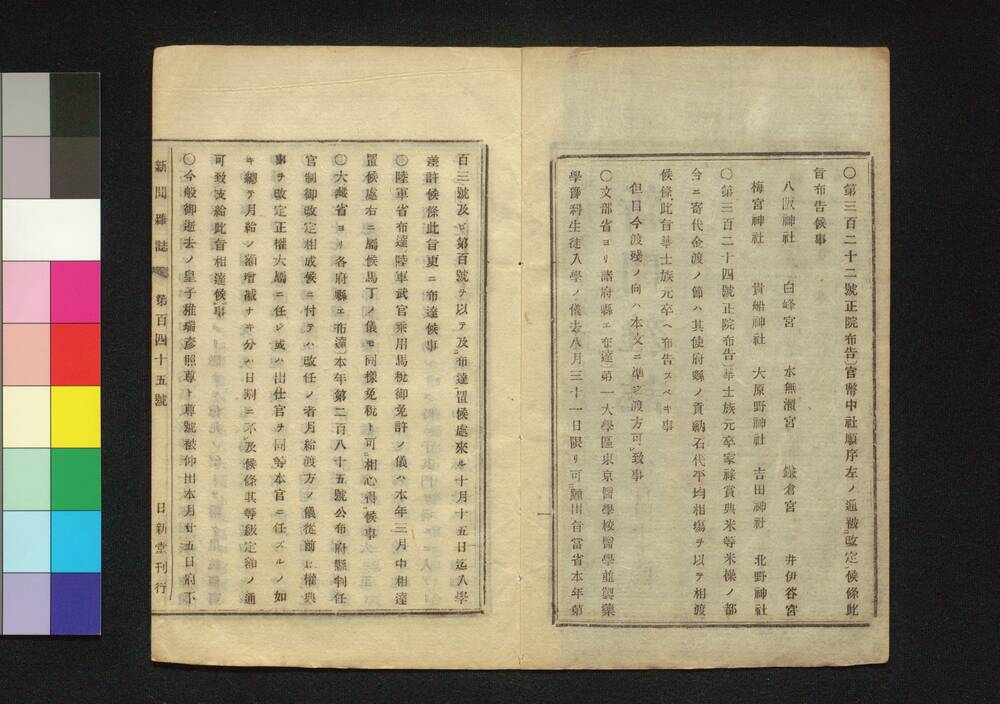 〇第三百二十二號正院布告官幣中社順序左ノ通被改定候條此
旨布告候事
八阪神社 白峰宮 水無瀬宮 鎌倉宮 井伊谷宮
梅宮神社 貴船神社 大原野神社 吉田神社 北野神社
〇第三百二十四號正院布告華士族元卒家祿賞典米等米操ノ都
合ニ寄代金渡ノ節ハ其使府縣ノ貢納石代平均相塲ヲ以テ相渡
候條此旨華士族元卒ヘ布告スベキ事
但目今渡殘ノ向ハ本文ニ準シ渡方可致事
〇文部省ヨリ諸府縣エ布達第一大學區東京醫學校醫學並製藥
學豫科生徒入學ノ儀去八月三十一日限リ可願出旨當省本年第
百三號及ヒ第百號ヲ以テ及布達置候處來ル十月十五日迄入學
差許候條此旨更ニ布達候事
〇陸軍省布達陸軍武官乘用馬稅御免許ノ儀ハ本年三月中相達
置候處右ニ屬候馬丁ノ儀モ同樣免稅ト可相心得候事
〇大藏省ヨリ各府縣エ布達本年第二百八十五號公布府縣判任
官制御改定相成候ニ付テハ改任ノ者月給渡方ノ儀從前ニ權典
事ヲ改定正權大屬ニ任シ或ハ出仕官ヲ同等本官ニ任スルノ如
キ總テ月給ノ額增減ナキ分ハ日割ニ不及候條其等級定額ノ通
可致支給此旨相達候事
〇今般御逝去ノ皇子稚瑞彥照尊ト尊號被仰出本月廿五日府下
新聞雜誌 第百四十五號 日新堂刊行